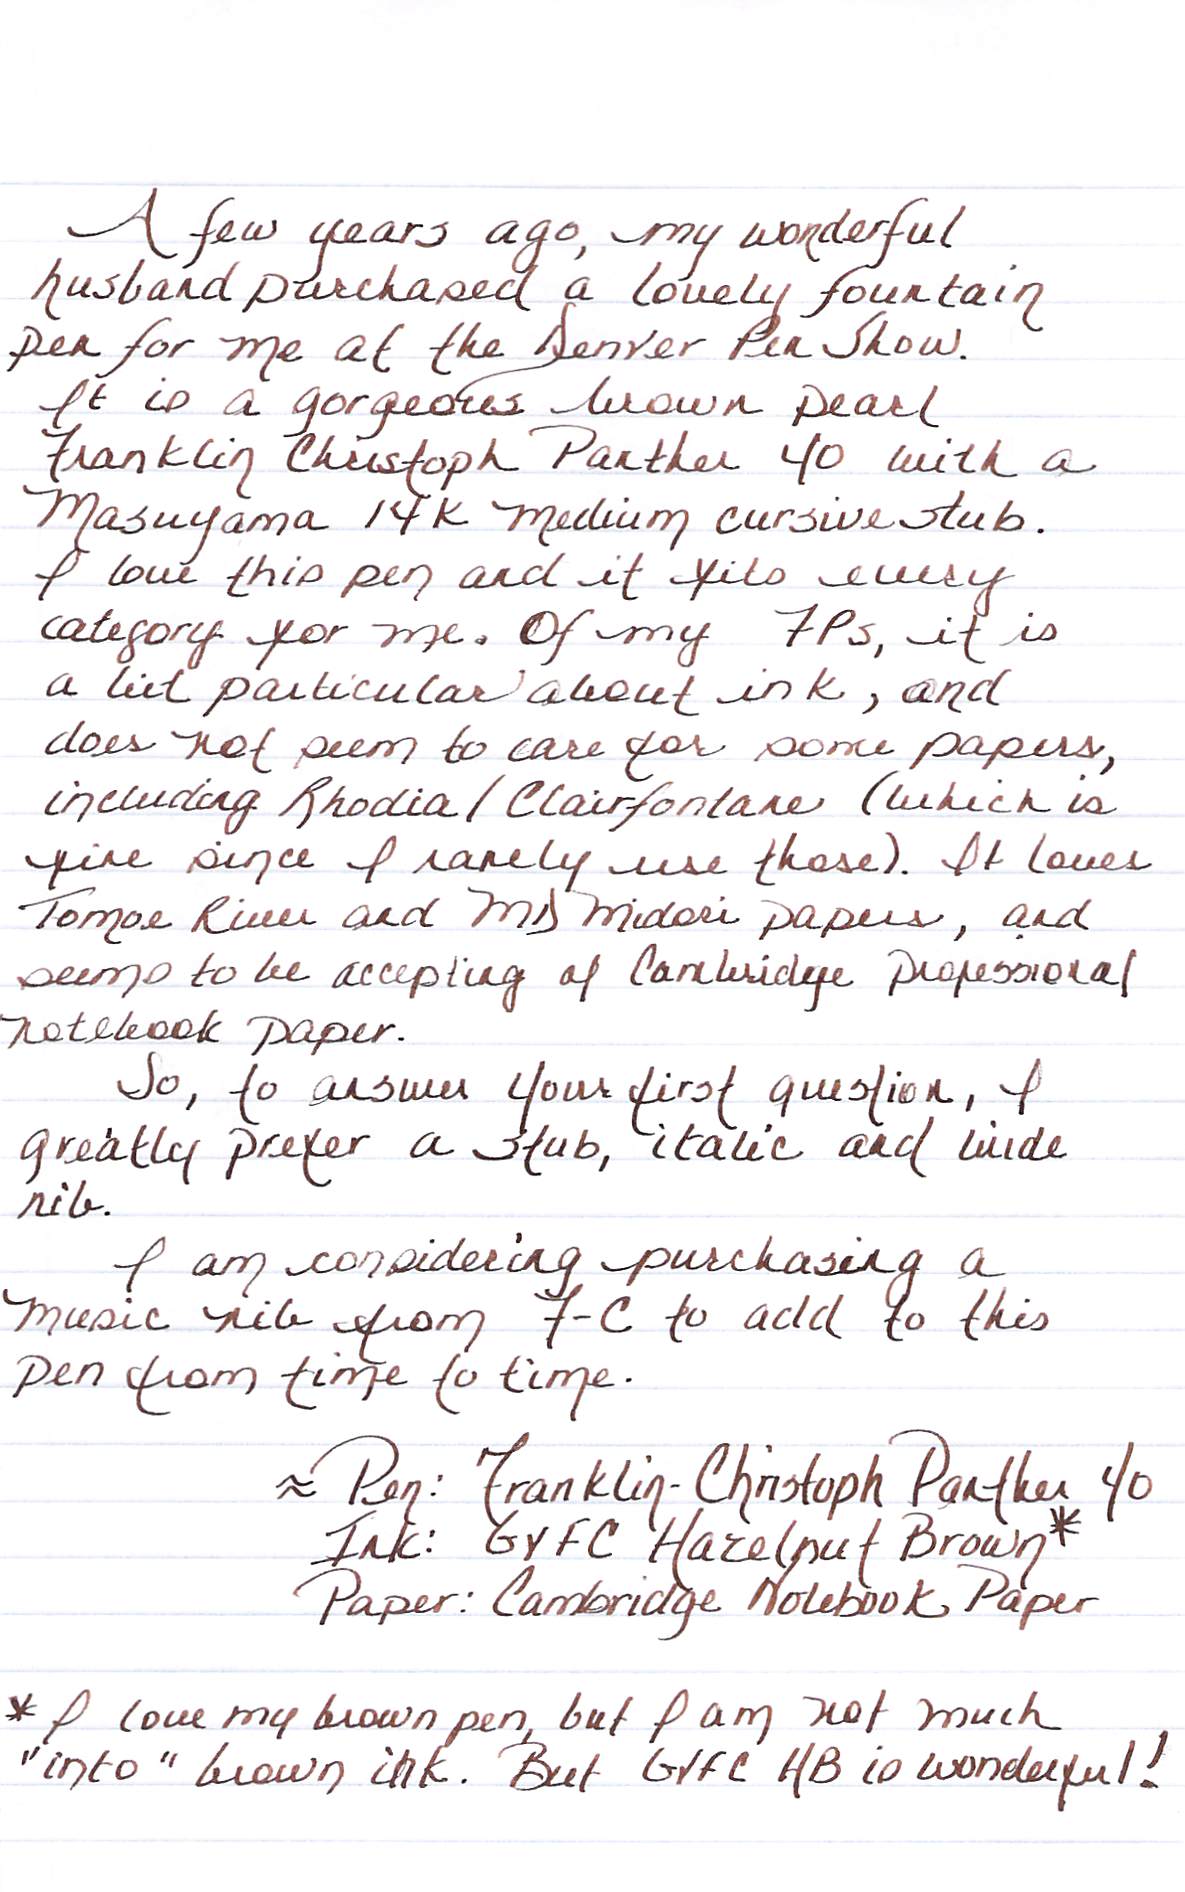 A few years ago, my wonderful
husband purchased a lovely fountain
pen for me at the Denver Pen Show.
It is a gorgeous brown pearl
Franklin Christoph Panther 40 with a
Masuyama 14K medium cursive stub.
I love this pen and it fits every
category for me. Of my FPs, it is
a bit particular about ink, and
does not seem to care for some papers,
including Rhodia/Clairfontane (which is
fine since I rarely use those). It loves
Tomoe River and MD Midori papers, and
seems to be accepting of Cambridge Professional
notebook paper.
So, to answer your first question, I
greatly prefer a stub, italic and wide
nib.
I am considering purchasing a
music nib from F-C to add to this
pen from time to time.
≈ Pen: Franklin-Christoph Panther 40
Ink: GVFC Hazelnut Brown*
Paper: Cambridge Notebook Paper
* I love my brown pen, but I am not much
"into" brown ink. But GVFC HB is wonderful!